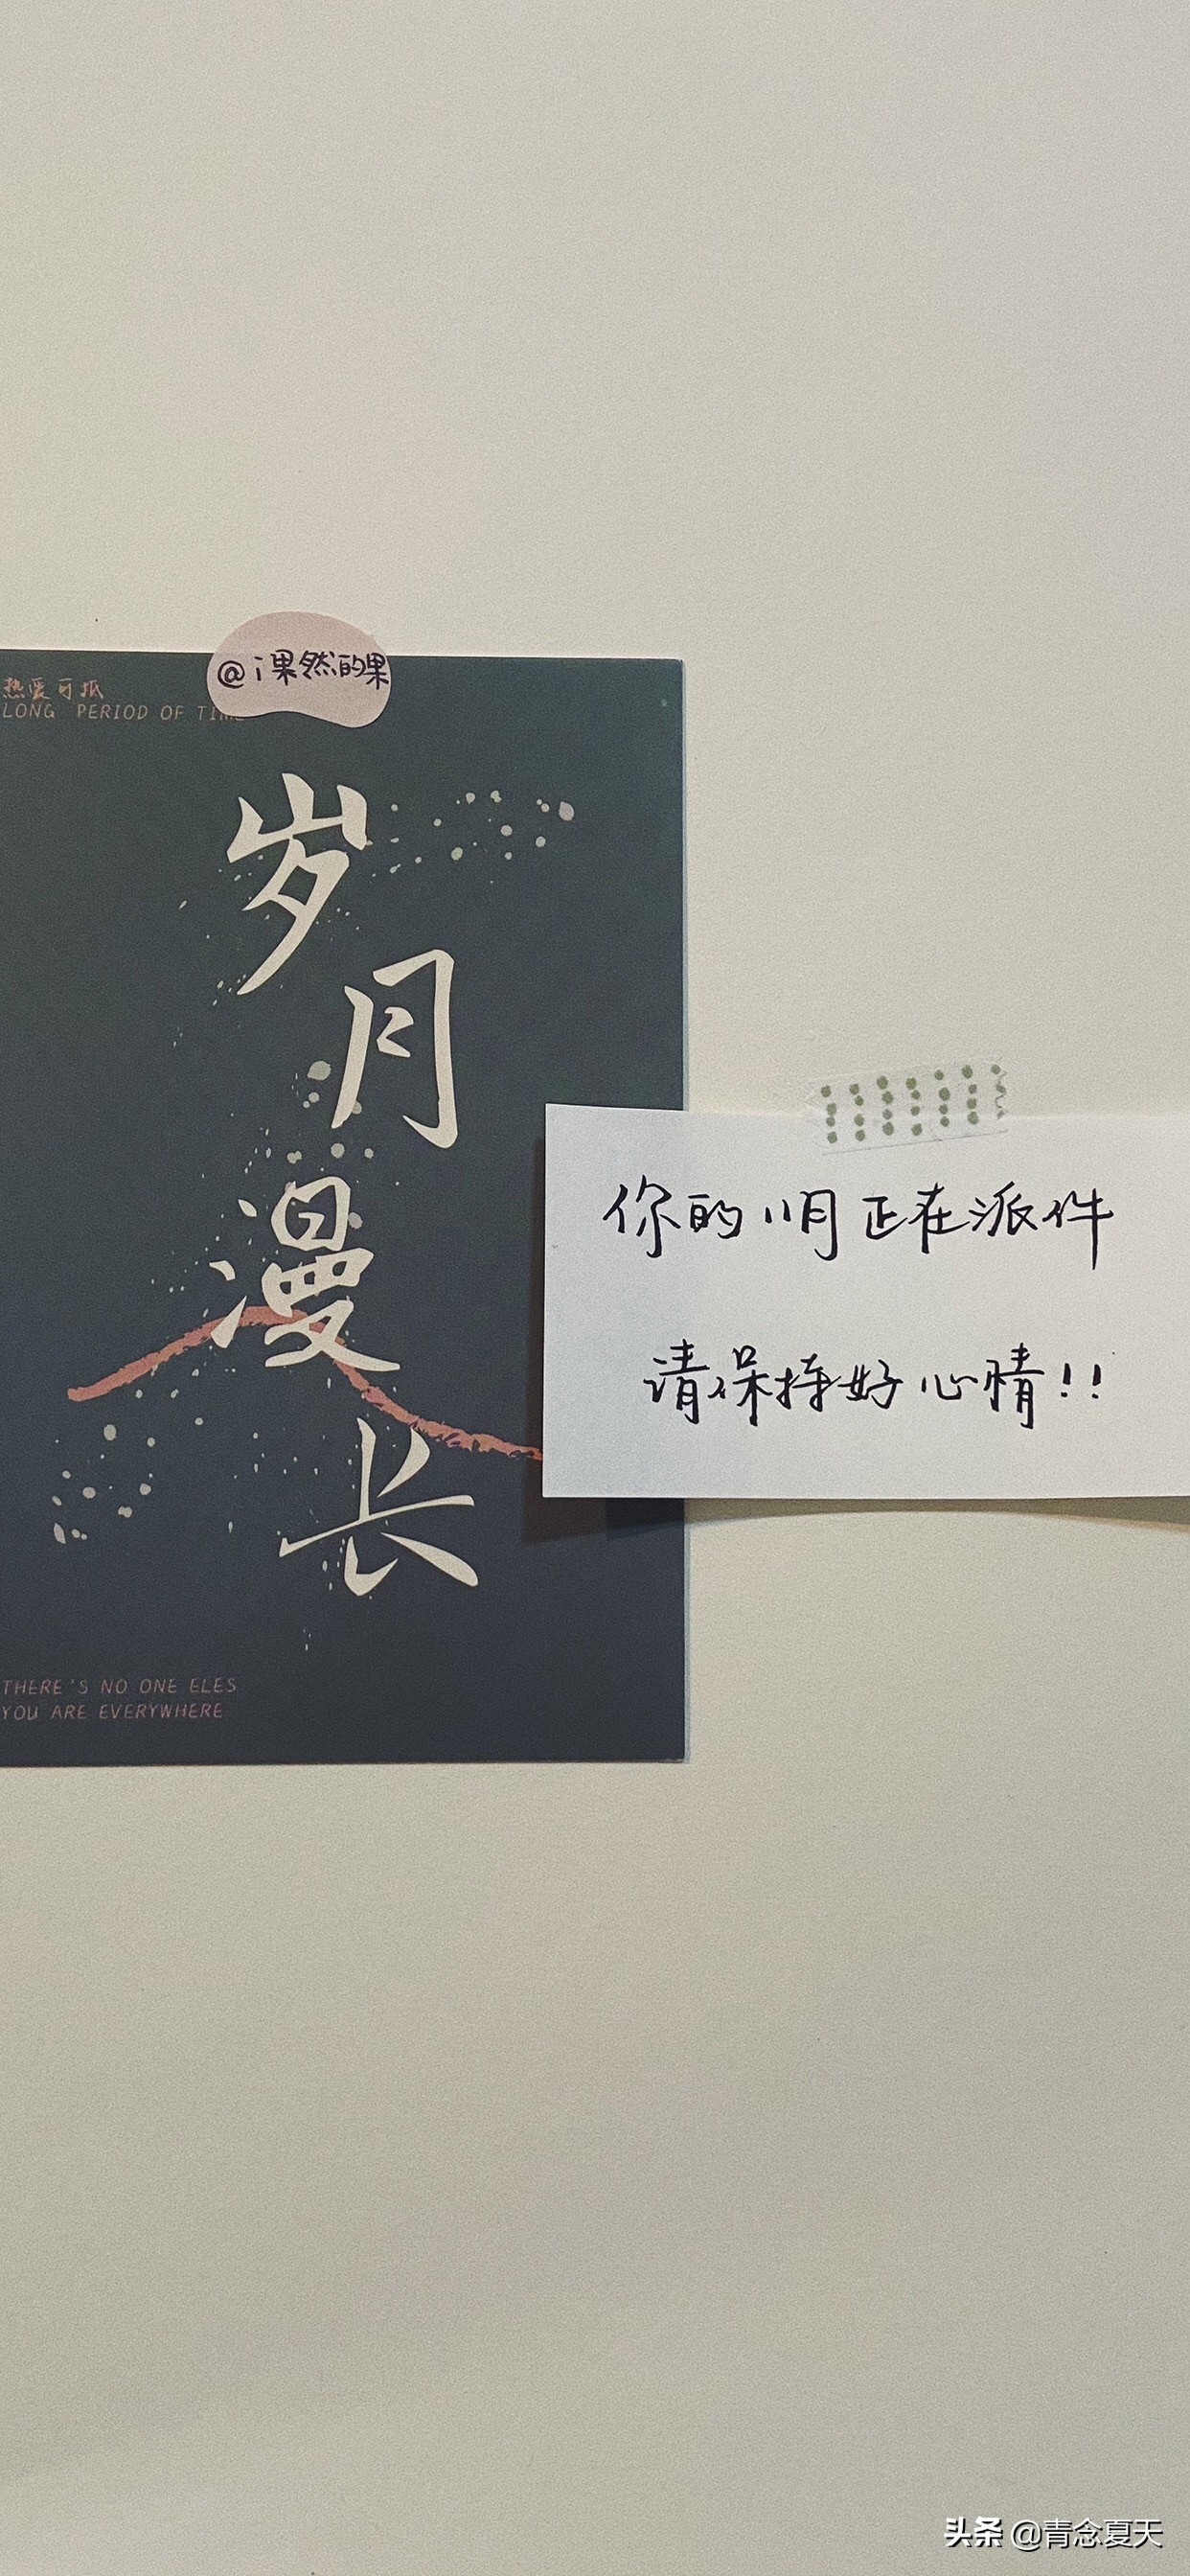 @i果然的果
热爱可抵
LONG PERIOD OF TIME
岁
月
漫
长
你的11月正在派件
请保持好心情!!
THERE'S NO ONE ELES
YOU ARE EVERYWHERE
头条 @青念夏天